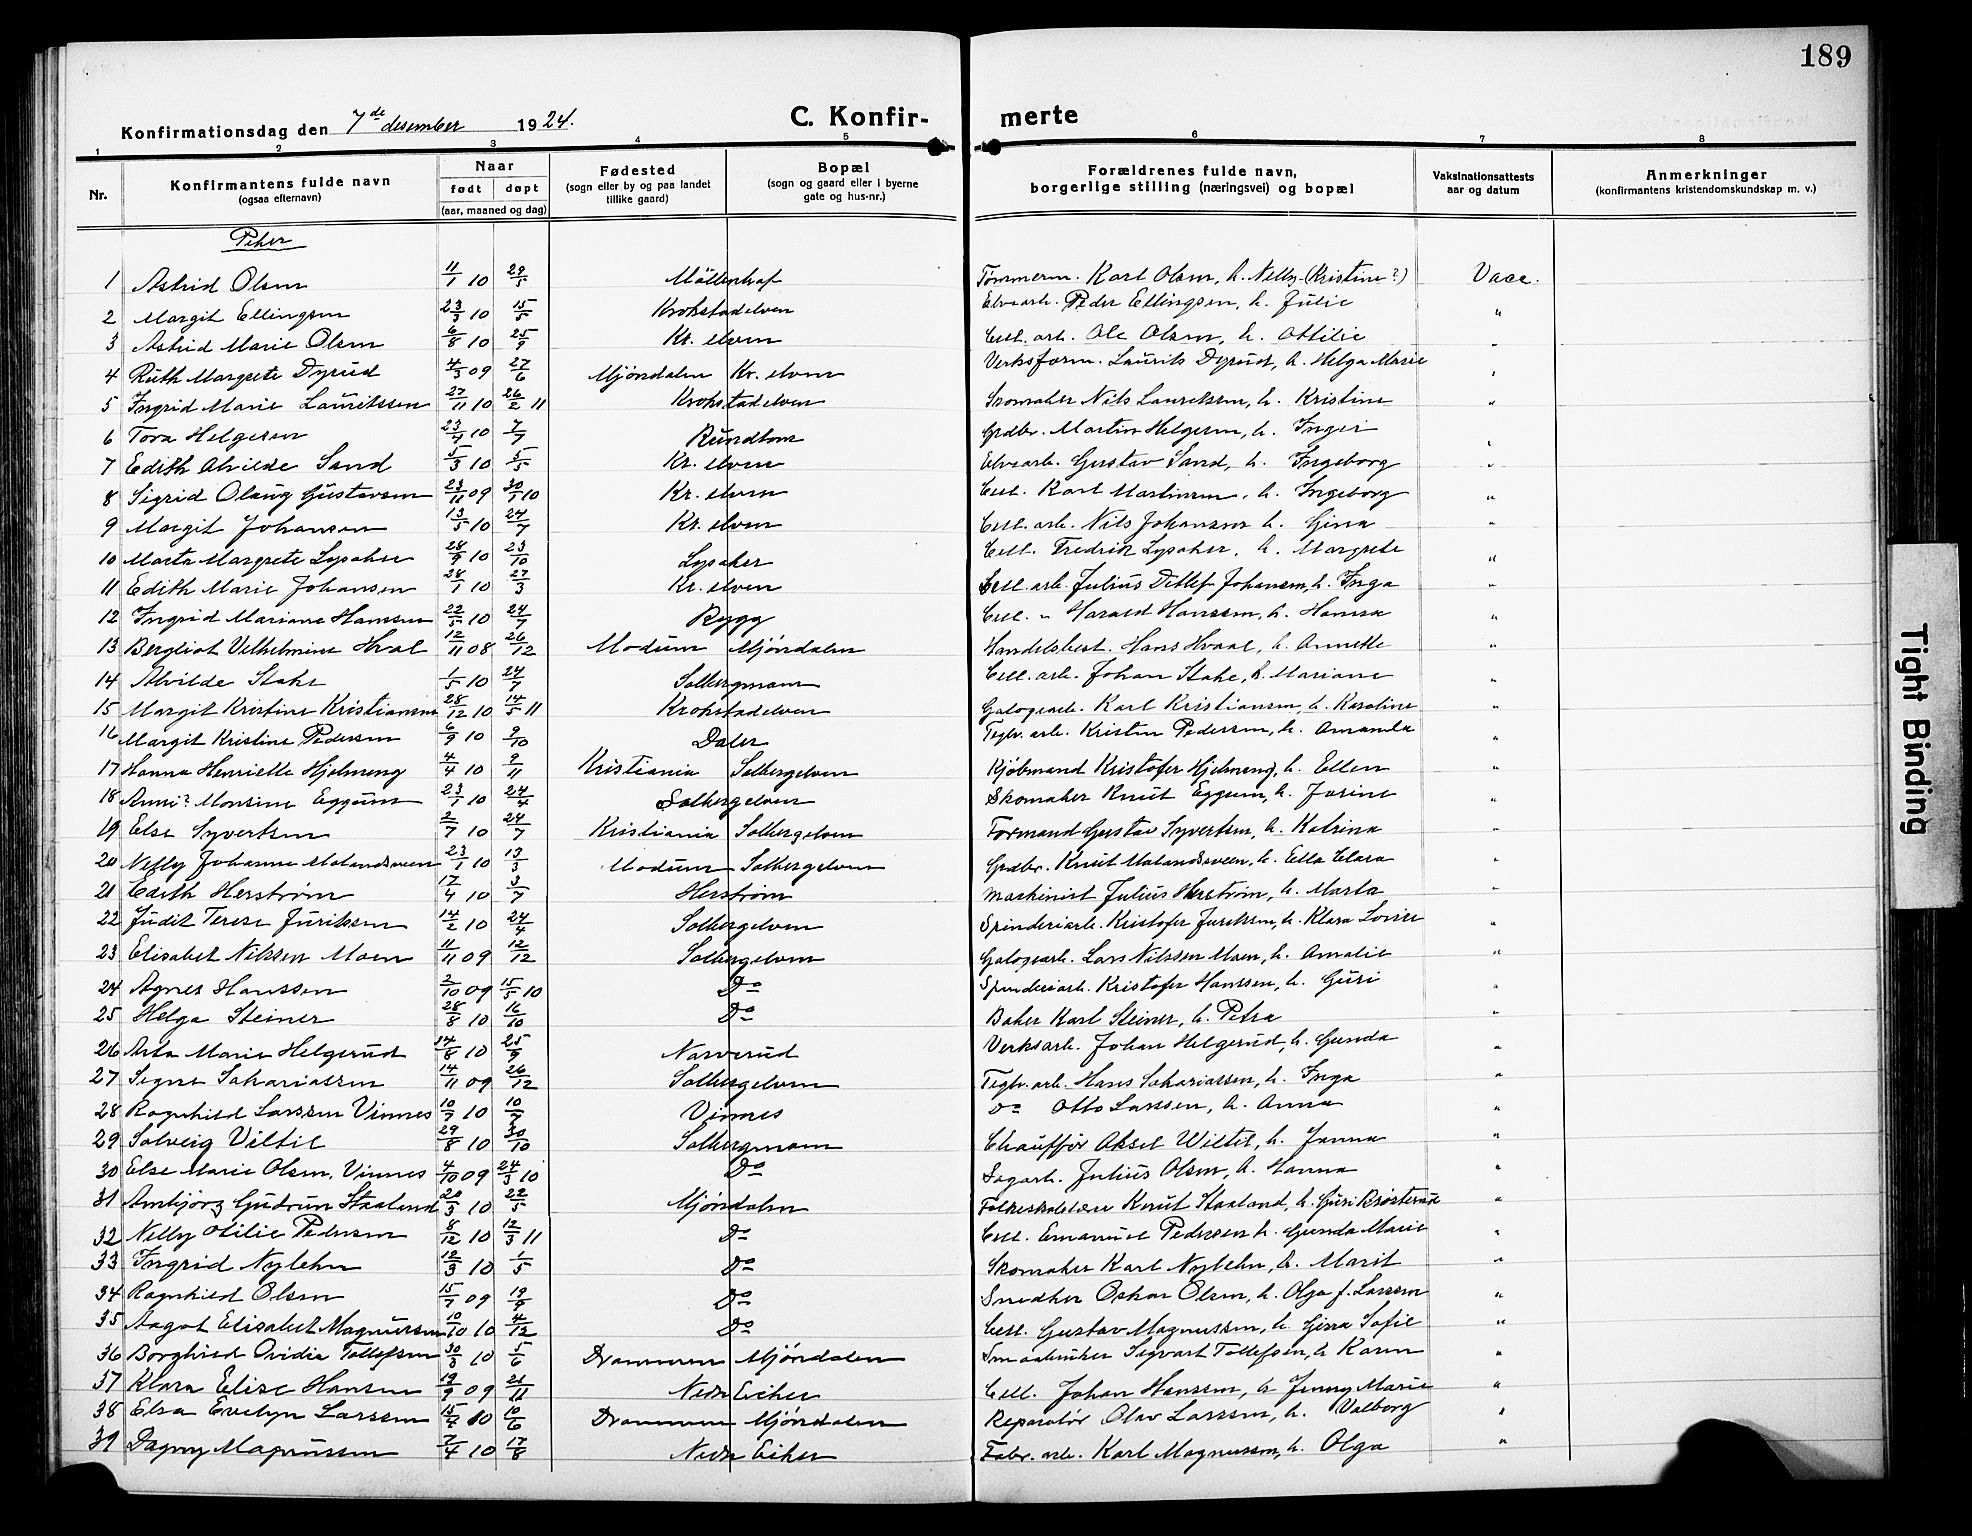 189
Konfirmationsdag den 7de desember 1924.
C. Konfir-merte
1 2 3 4 5 6 7 8
Nr. Konfirmantens fulde navn (ogsaa efternavn) Naar født døpt (aar, maaned og dag) Fødested (sogn eller by og paa landet tillike gaard) Bopæl (sogn og gaard eller i byerne gate og hus-nr.) Forældrenes fulde navn, borgerlige stilling (næringsvei) og bopæl Vaksinationsattests aar og datum Anmerkninger (konfirmantens kristendomskundskap m. v.)
Piker
1 Astrid Olsen 11/1 10 29/5 Möllenhof Tømmerm. Karl Olsen, h. Nelly (Kristine?) Vacc.
2 Margit Ellingsen 23/3 10 15/5 Krokstadelven Elvearb. Peder Ellingsen, h. Julie "
3 Astrid Marie Olsen 6/8 10 25/9 Kr. elven Cell. arb. Ole Olsen, h. Ottilie "
4 Ruth Margrete Dyrud 4/3 09 27/6 Mjöndalen Kr. elven Verksform. Laurits Dyrud, h. Helga Marie "
5 Ingrid Marie Lauritssen 27/11 10 26/2 11 Krokstadelven Skomaker Nils Lauritssen, h. Kristine "
6 Tora Helgesen 23/4 10 7/7 Rundtom Grdbr. Martin Helgesen, h. Inger "
7 Edith Alvilde Sand 5/3 10 5/5 Kr. elven Elvearb. Gustav Sand, h. Ingeborg "
8 Sigrid Olaug Gustavsen 23/11 09 30/1 10 Kr. elven Cell. Karl Martinsen, h. Ingeborg "
9 Margit Johansen 13/5 10 24/7 Kr. elven Cell. arb. Nils Johansen h. Gina "
10 Marta Margrete Lysaker 28/9 10 23/10 Lysaker Cell. Fredrik Lysaker, h. Margrete "
11 Edith Marie Johansen 28/1 10 27/3 Kr. elven Cell. arb. Julius Detlef Johansen, h. Inga "
12 Ingrid Mariane Hanssen 22/5 10 24/7 Rygg Cell. " Harald Hanssen, h. Hanna "
13 Bergliot Velhelmine Hval 12/11 08 26/12 Modum Mjöndalen Handelsbest. Hans Hvaal, h. Annette "
14 Alvilde Stake 1/5 10 24/7 Solbergmoen Cell. arb. Johan Stake, h. Mariane "
15 Margit Kristine Kristiansen 28/12 10 14/5 11 Krokstadelven Galogearb. Karl Kristiansen, h. Karoline "
16 Margit Kristine Pedersen 6/9 10 9/10 Daler Teglv. arb. Kristen Pedersen, h. Amanda "
17 Hanna Henriette Hjelmeng 4/4 10 9/11 Kristiania Solbergelven Kjöbmand Kristofer Hjelmeng, h. Ellen "
18 Anni? Monsine Eggum 23/1 10 24/4 Solbergelven Skomaker Knut Eggum, h. Josine "
19 Else Syvertsen 2/7 10 24/7 Kristiania Solbergelven Formand Gustav Syvertsen, h. Katrina "
20 Nelly Johanne Molandsveen 23/1 10 13/3 Modum Solbergelven Grdbr. Knut Molandsveen, h. Ella Clara "
21 Edith Herstrøm 17/4 10 3/7 Herstrøm Maskinist Julius Herstrøm, h. Marta "
22 Judit Terese Juriksen 14/2 10 24/4 Solbergelven Spinderiarb. Kristofer Juriksen, h. Klara Lovise "
23 Elisabet Nilssen Moen 11/11 09 12/12 Solbergelven Galogearb. Lars Nilssen Moen, h. Amalie "
24 Agnes Hanssen 2/10 09 15/5 10 Do Spinderiarb. Kristofer Hanssen, h. Guri "
25 Helga Steiner 28/8 10 16/10 Do Baker Karl Steiner, h. Petra "
26 Asta Marie Helgerud 14/8 10 25/9 Narverud Verksarb. Johan Helgerud, h. Gunda "
27 Signe Sakariassen 14/11 09 26/12 Solbergelven Teglv. arb. Hans Sakariassen, h. Inga "
28 Ragnhild Larssen Vinnes 10/7 10 10/9 Vinnes Do Otto Larssen, h. Anna "
29 Solveig Viltil 29/8 10 30/10 Solbergmoen Chauffør Aksel Wiltil, h. Janna "
30 Else Marie Olsen, Vinnes 4/10 09 24/3 10 Do Sagarb. Julius Olsen, h. Hanna "
31 Ambjörg Gudrun Staaland 20/3 10 22/5 Mjöndalen Folkeskolelærer Knut Staaland, h. Guri Brösterud "
32 Nelly Otilie Pedersen 8/12 10 12/3 11 Do Cell. Emanuel Pedersen h. Gunda Marie "
33 Ingrid Nylehn 12/3 10 1/5 Do Skomaker Karl Nylehn, h. Marit "
34 Ragnhild Olsen 15/7 09 19/9 Do Snedker Oskar Olsen, h. Olga f. Larssen "
35 Aagot Elisabet Magnussen 10/10 10 4/12 Do Cell. Gustav Magnussen, h. Gina Sofie "
36 Borghild Ovidia Tollefsen 30/3 10 5/6 Drammen Mjöndalen Smaabruker Sigvart Tollefsen, h Karen "
37 Klara Elise Hansen 19/9 09 21/11 Nedre Eiker Cell. Johan Hanssen, h Jenny Marie "
38 Elsa Evelyn Larssen 15/4 10 10/6 Drammen Mjöndalen Reparatör Olav Larssen, h. Valborg "
39 Dagny Magnussen 7/4 10 17/8 Nedre Eiker Fabr. arb. Karl Magnussen, h. Olga "
Tight Binding